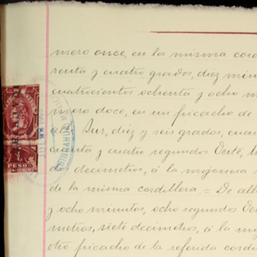 mero once, en la misma cord
renta y cuatro grados, diez min
cuatrocientos ochenta y ocho m
mero doce, en un picacho de
Sur, diez y seis grados, cuar
cuenta y cuatro segundos Oeste,
de decímetros, á la
de la misma cordillera = De alli
y ocho minutos, ocho segundos Oes
metros, siete decímetros, á la m
otro picacho de la referida cordi
PESO